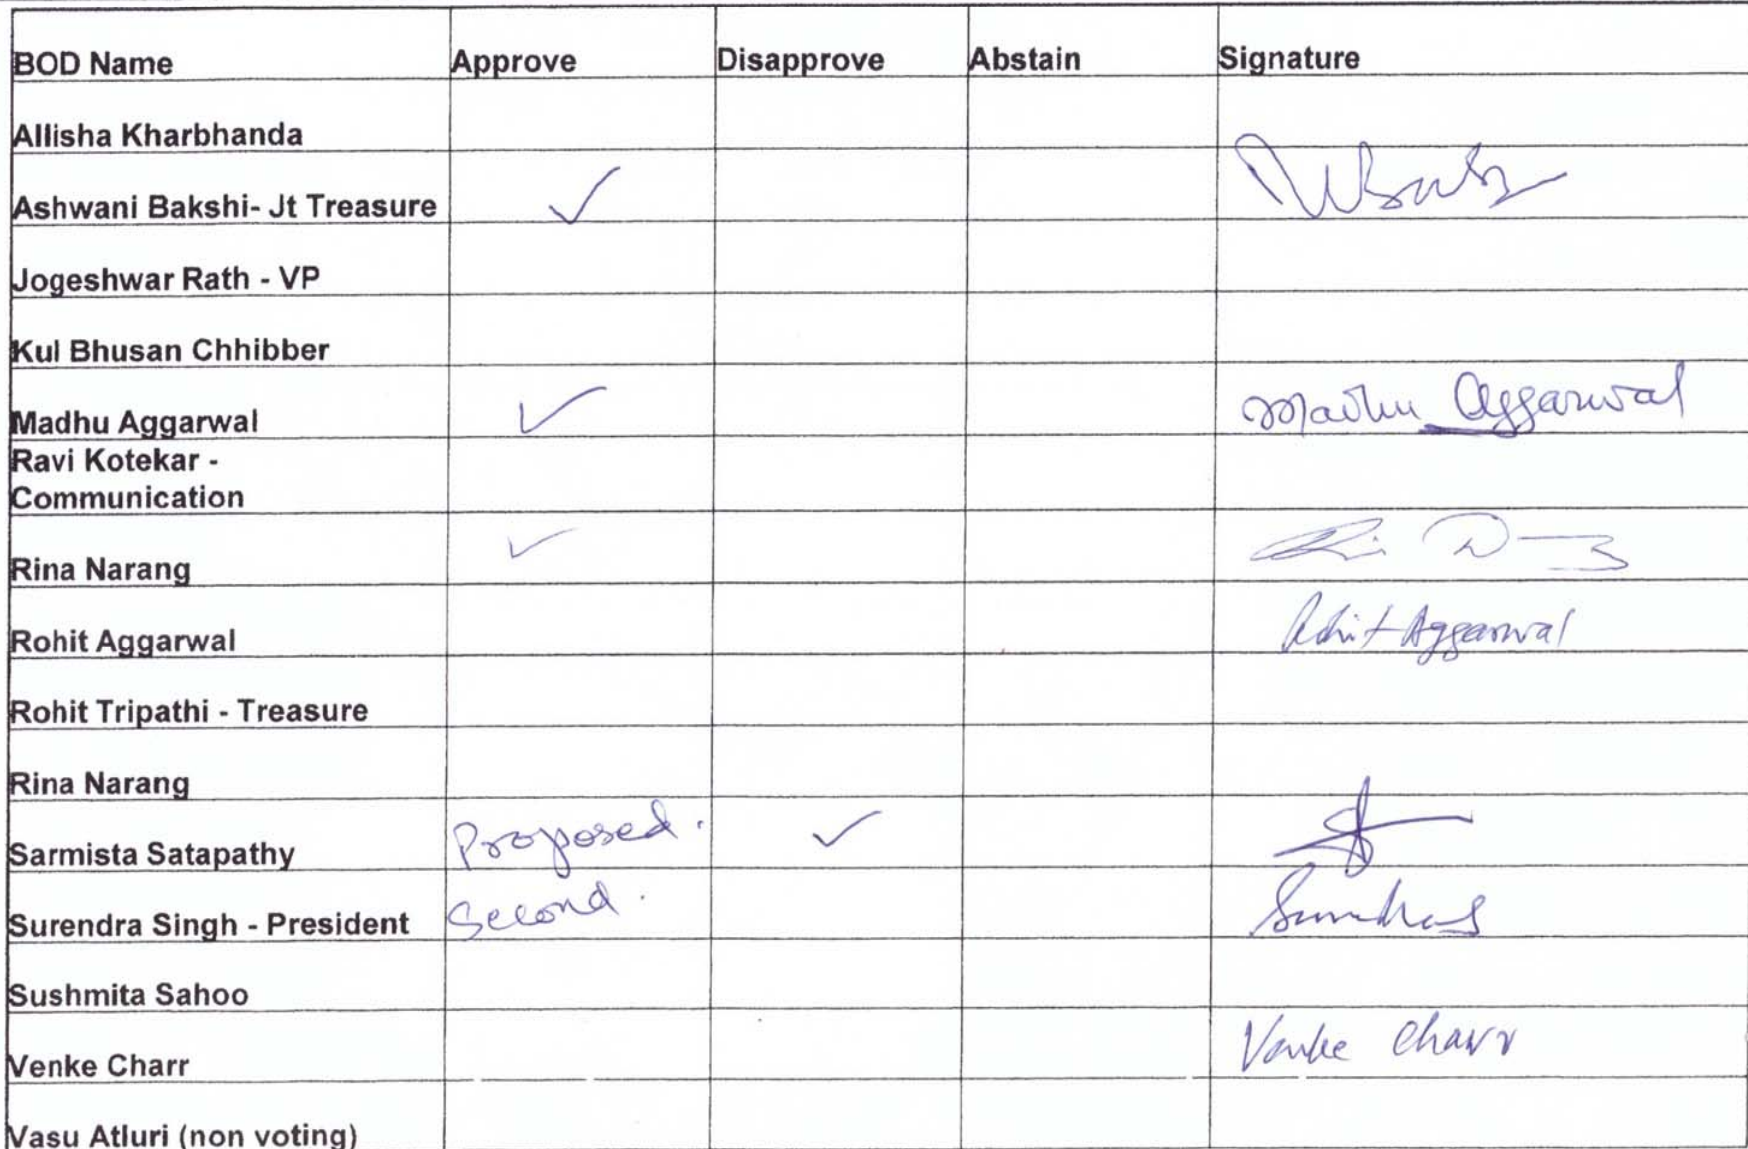 BOD Name Approve Disapprove Abstain Signature
Allisha Kharbhanda
Ashwani Bakshi- Jt Treasure ✓
Jogeshwar Rath - VP
Kul Bhusan Chhibber
Madhu Aggarwal ✓ Madhu Aggarwal
Ravi Kotekar -
Communication
Rina Narang ✓
Rohit Aggarwal Rohit Aggarwal
Rohit Tripathi - Treasure
Rina Narang
Sarmista Satapathy Proposed. ✓
Surendra Singh - President Second.
Sushmita Sahoo
Venke Charr Venke Charr
Vasu Atluri (non voting)